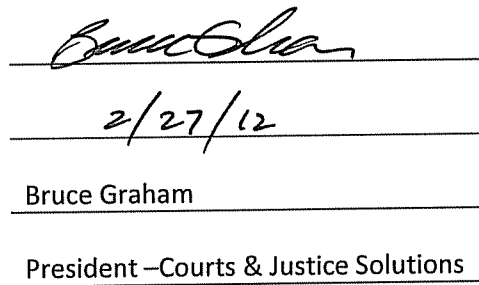 Bruce Graham
2/27/12
Bruce Graham
President –Courts & Justice Solutions